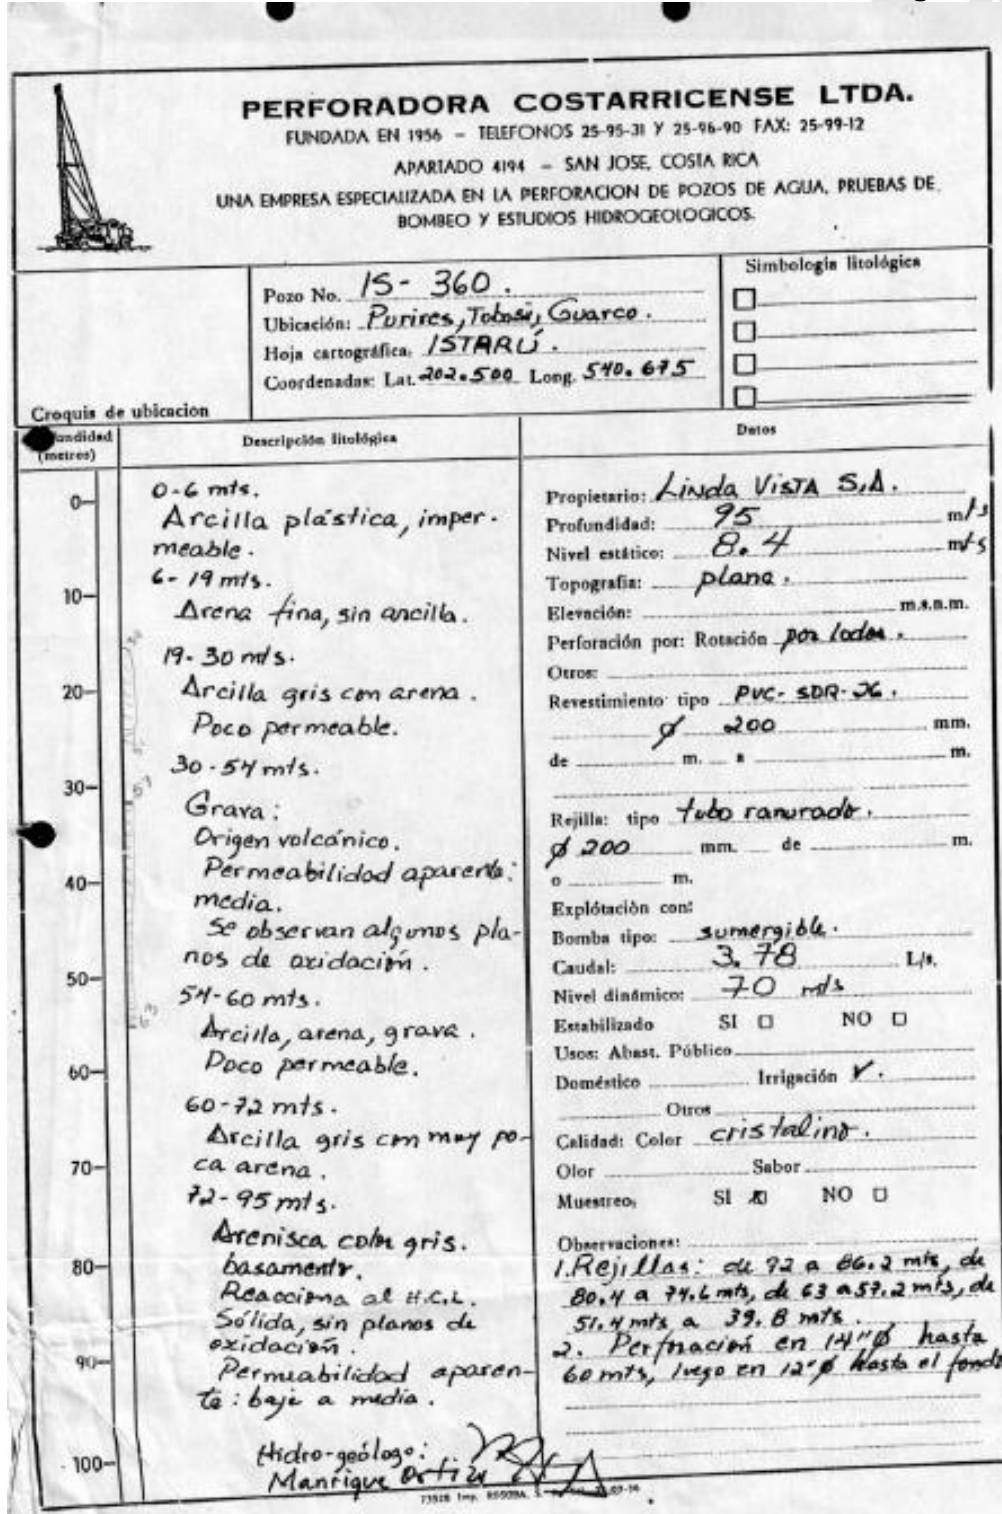 PERFORADORA COSTARRICENSE LTDA.
FUNDADA EN 1956 – TELEFONOS 25-95-31 Y 25-96-90 FAX: 25-99-12
APARTADO 4194 – SAN JOSE, COSTA RICA
UNA EMPRESA ESPECIALIZADA EN LA PERFORACION DE POZOS DE AGUA, PRUEBAS DE
BOMBEO Y ESTUDIOS HIDROGEOLOGICOS.
Croquis de ubicación
Pozo No. IS-360.
Ubicación: Purires, Tobosi, Guarco.
Hoja cartográfica: ISTARÚ.
Coordenadas: Lat. 202.500 Long. 540.675
Simbología litológica
undidad
(metros)
0
10
20
30
40
50
60
70
80
90
100
Descripción litológica
0-6 mts.
Arcilla plástica, imper-
meable.
6-19 mts.
Arena fina, sin arcilla.
19-30 mts.
Arcilla gris con arena.
Poco permeable.
30-54 mts.
Grava:
Origen volcánico.
Permeabilidad aparente:
media.
Se observan algunos pla-
nos de oxidación.
54-60 mts.
Arcilla, arena, grava.
Poco permeable.
60-72 mts.
Arcilla gris con muy po-
ca arena.
72-95 mts.
Arenisca color gris.
basamento.
Reacciona al H.C.L.
Sólida, sin planos de
oxidación.
Permeabilidad aparen-
te: baje a media.
Hidro-geólogo:
Manrique Ortiz
Datos
Propietario: Linda Vista S.A.
Profundidad: 95 mts
Nivel estático: 8.4 mts
Topografía: plana.
Elevación: m.s.n.m.
Perforación por: Rotación por lodos.
Otros:
Revestimiento tipo PVC-SDR-26.
Ø 200 mm.
de m. a m.
Rejilla: tipo tubo ranurado.
Ø 200 mm. de m.
o m.
Explótación con:
Bomba tipo: sumergible.
Caudal: 3.78 L/s.
Nivel dinámico: 70 mts
Estabilizado SI NO
Usos: Abast. Público
Doméstico Irrigación ✓.
Otros
Calidad: Color cristalino.
Olor Sabor
Muestreo, SI X NO
Observaciones:
1. Rejillas: de 92 a 86.2 mts, de
80.4 a 74.6 mts, de 63 a 57.2 mts, de
51.4 mts a 39.8 mts.
2. Perforación en 14"Ø hasta
60 mts, luego en 12"Ø hasta el fondo